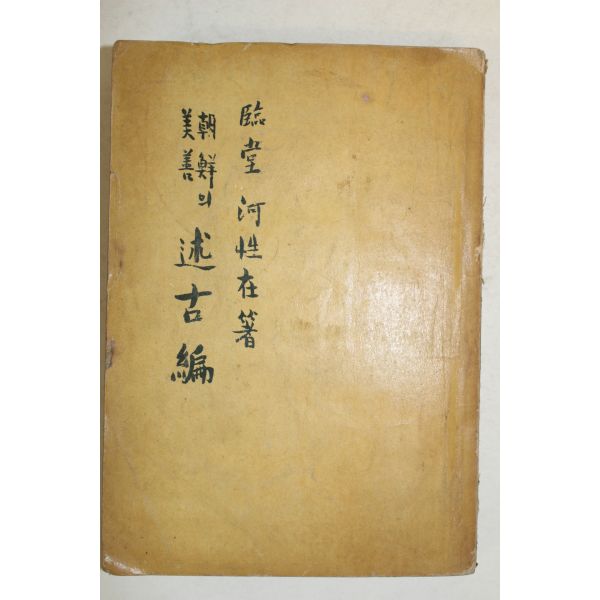 臨堂 河性在 著
朝鮮의
美善
述古編